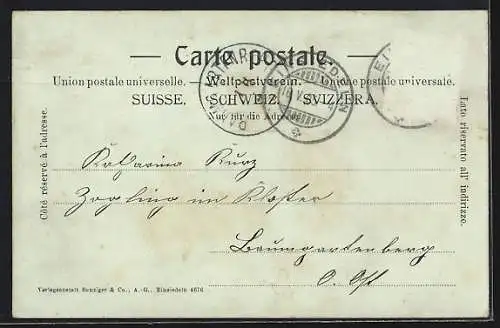 Carte postale.
Union postale universelle. — Weltpostverein. — Unione postale universale.
SUISSE. SCHWEIZ. SVIZZERA.
Nur für die Adresse.
Côté réservé à l'adresse.
Lato riservato all' indirizzo.
Katharina Kurz
Zögling im Kloster
Baumgartenberg
O. Öst
Verlagsanstalt Benziger & Co., A.-G., Einsiedeln 4676